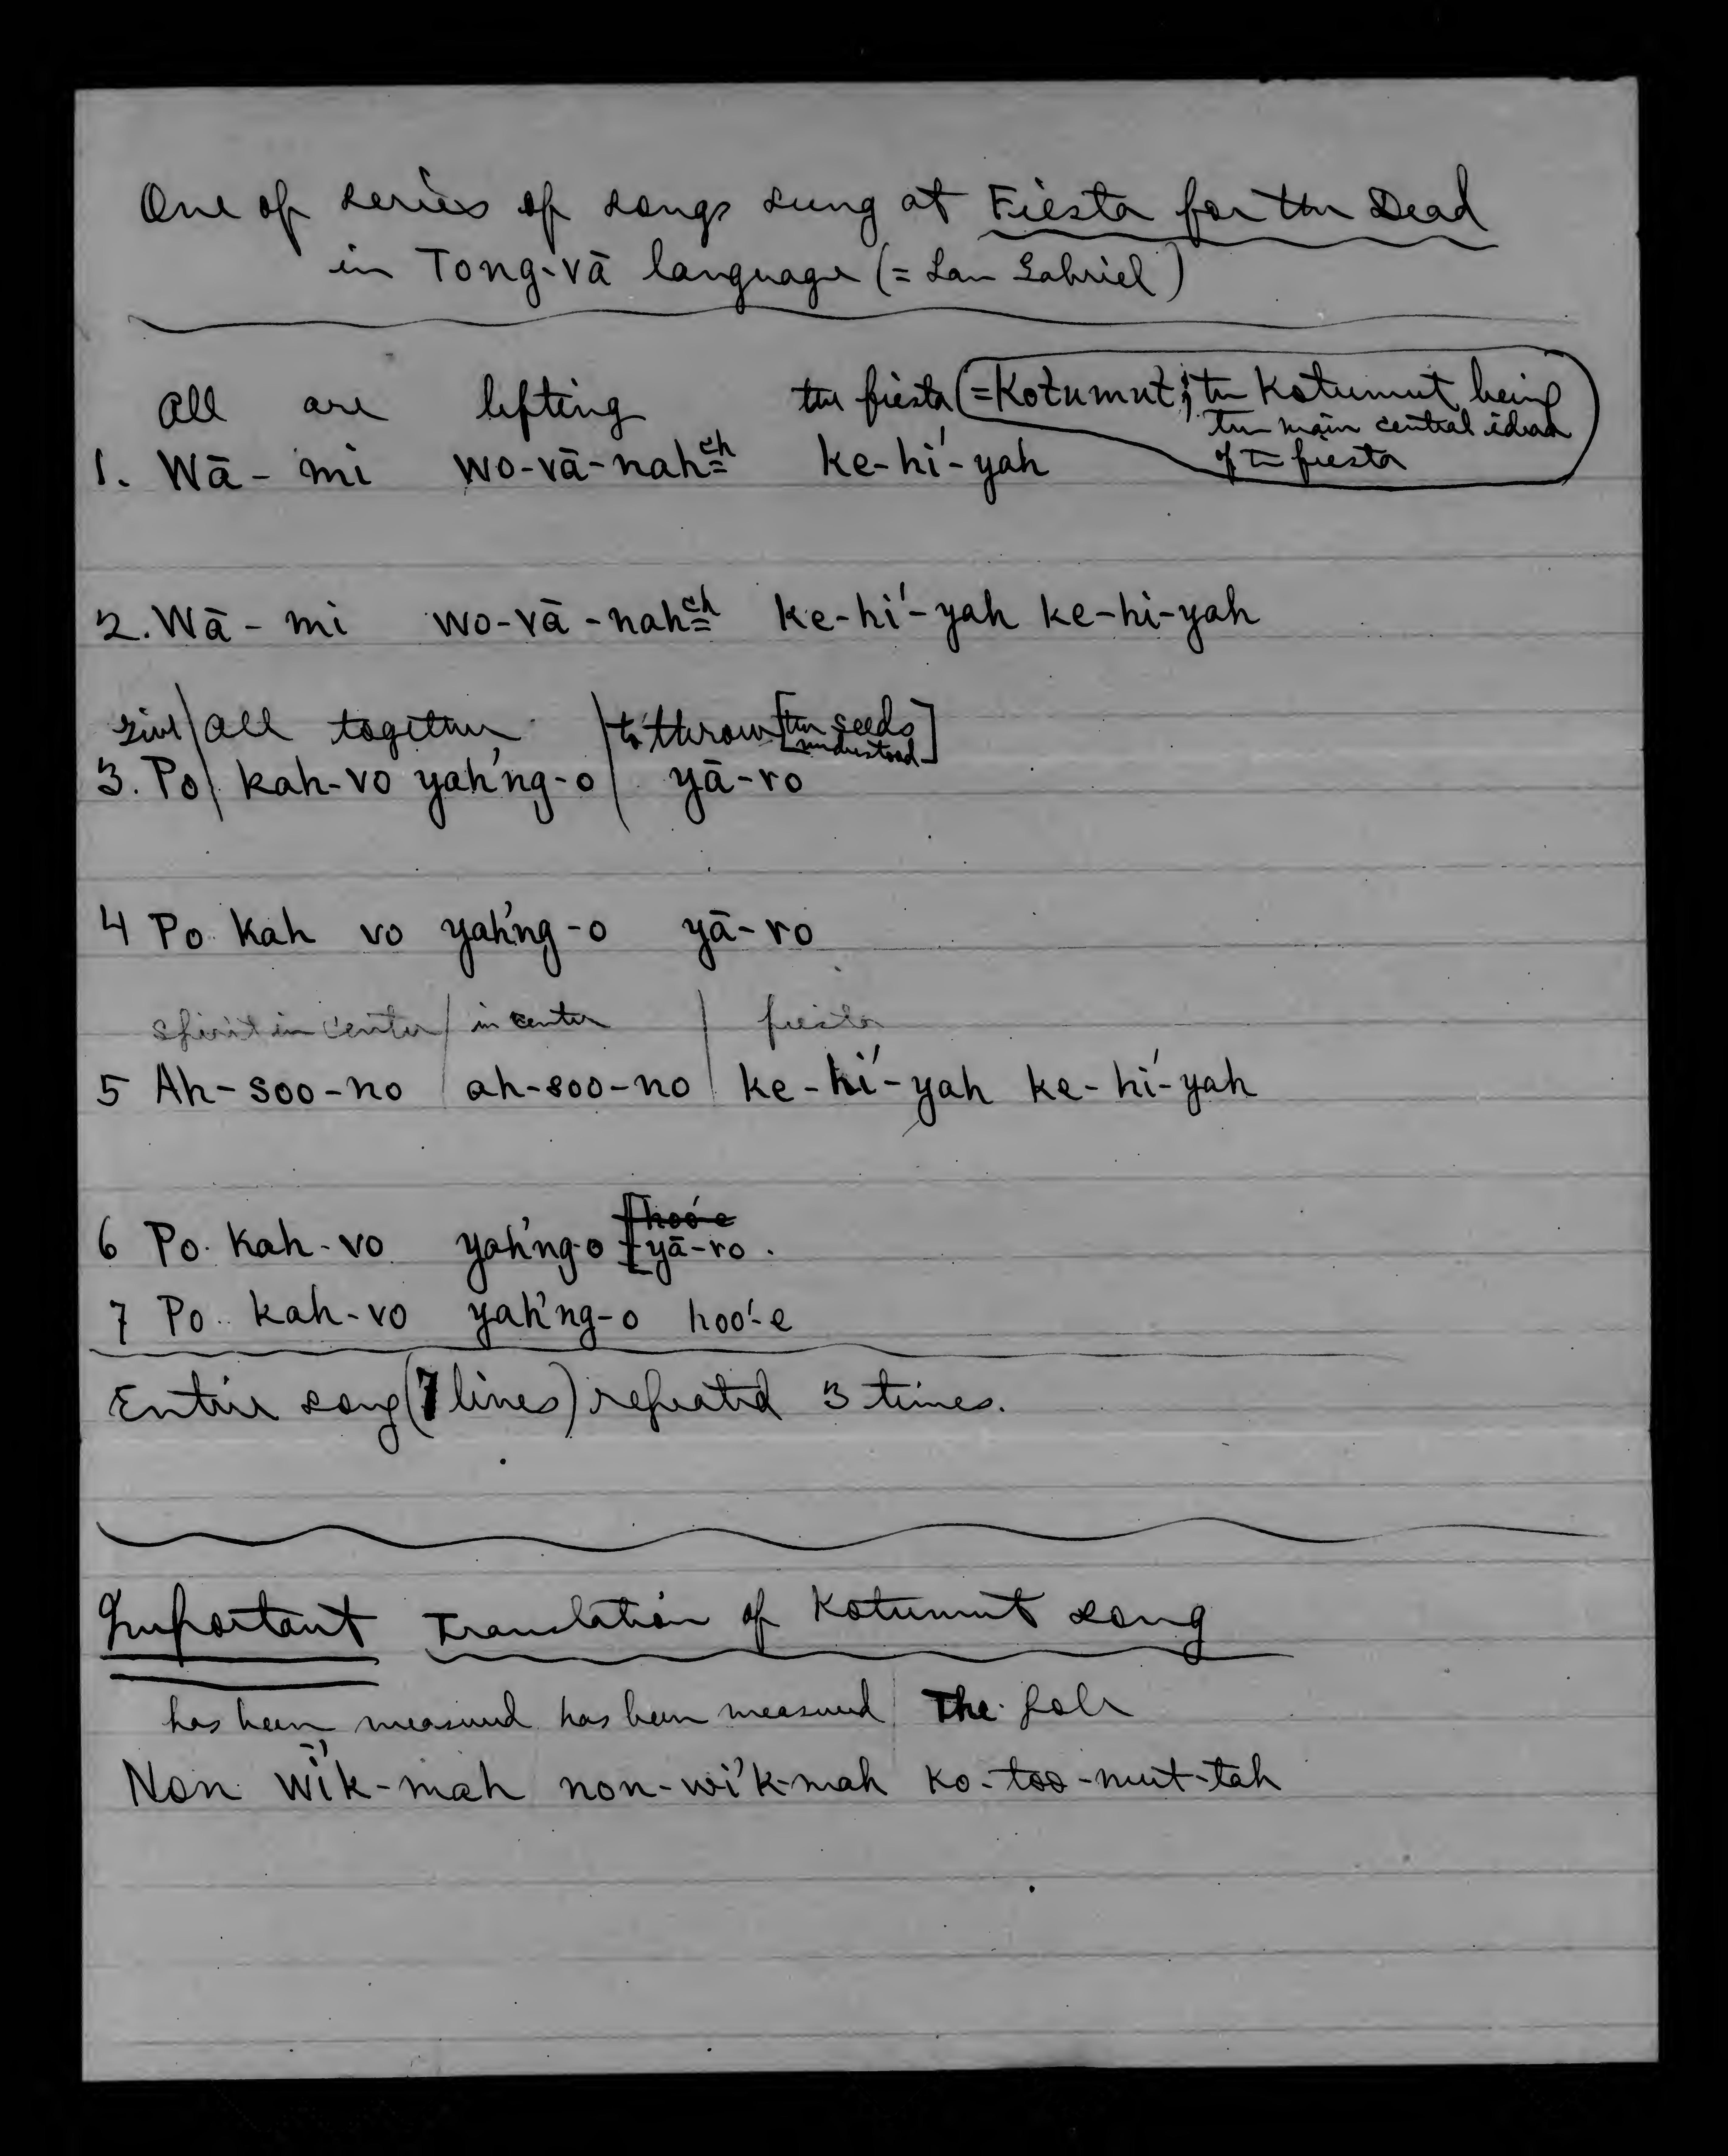 One of series of songs sung at Fiesta for the Dead
in Tong-vā language (= San Gabriel)
All are lifting the fiesta (=Kotumut; the Kotumut being
the main central idea
of the fiesta
1. Wā- mi wo-vā-nahch ke-hi´-yah
2. Wā- mi wo-vā-nahch ke-hi´-yah ke-hi-yah
give / all together / to throw [the seeds
understood]
3. Po / kah-vo yah´ng-o / yā-ro
4 Po kah vo yah´ng-o yā-ro
spirit in center / in center / fiesta
5 Ah-soo-no / ah-soo-no / ke-hi´-yah ke-hi´-yah
hoo´-e
6 Po kah-vo yah´ng-o [yā-ro.
7 Po kah-vo yah´ng-o hoo´-e
Entire song (7 lines) repeated 3 times.
Important Translation of Kotumut song
has been measured has been measured / The pole
Non wī´k-mah non-wi´k-mah ko-too-mut-tah